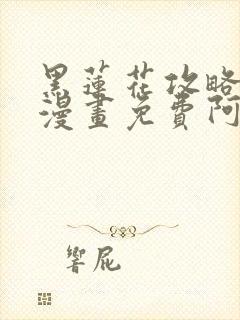 黑蓮花攻略
漫畫免費阿
響屁